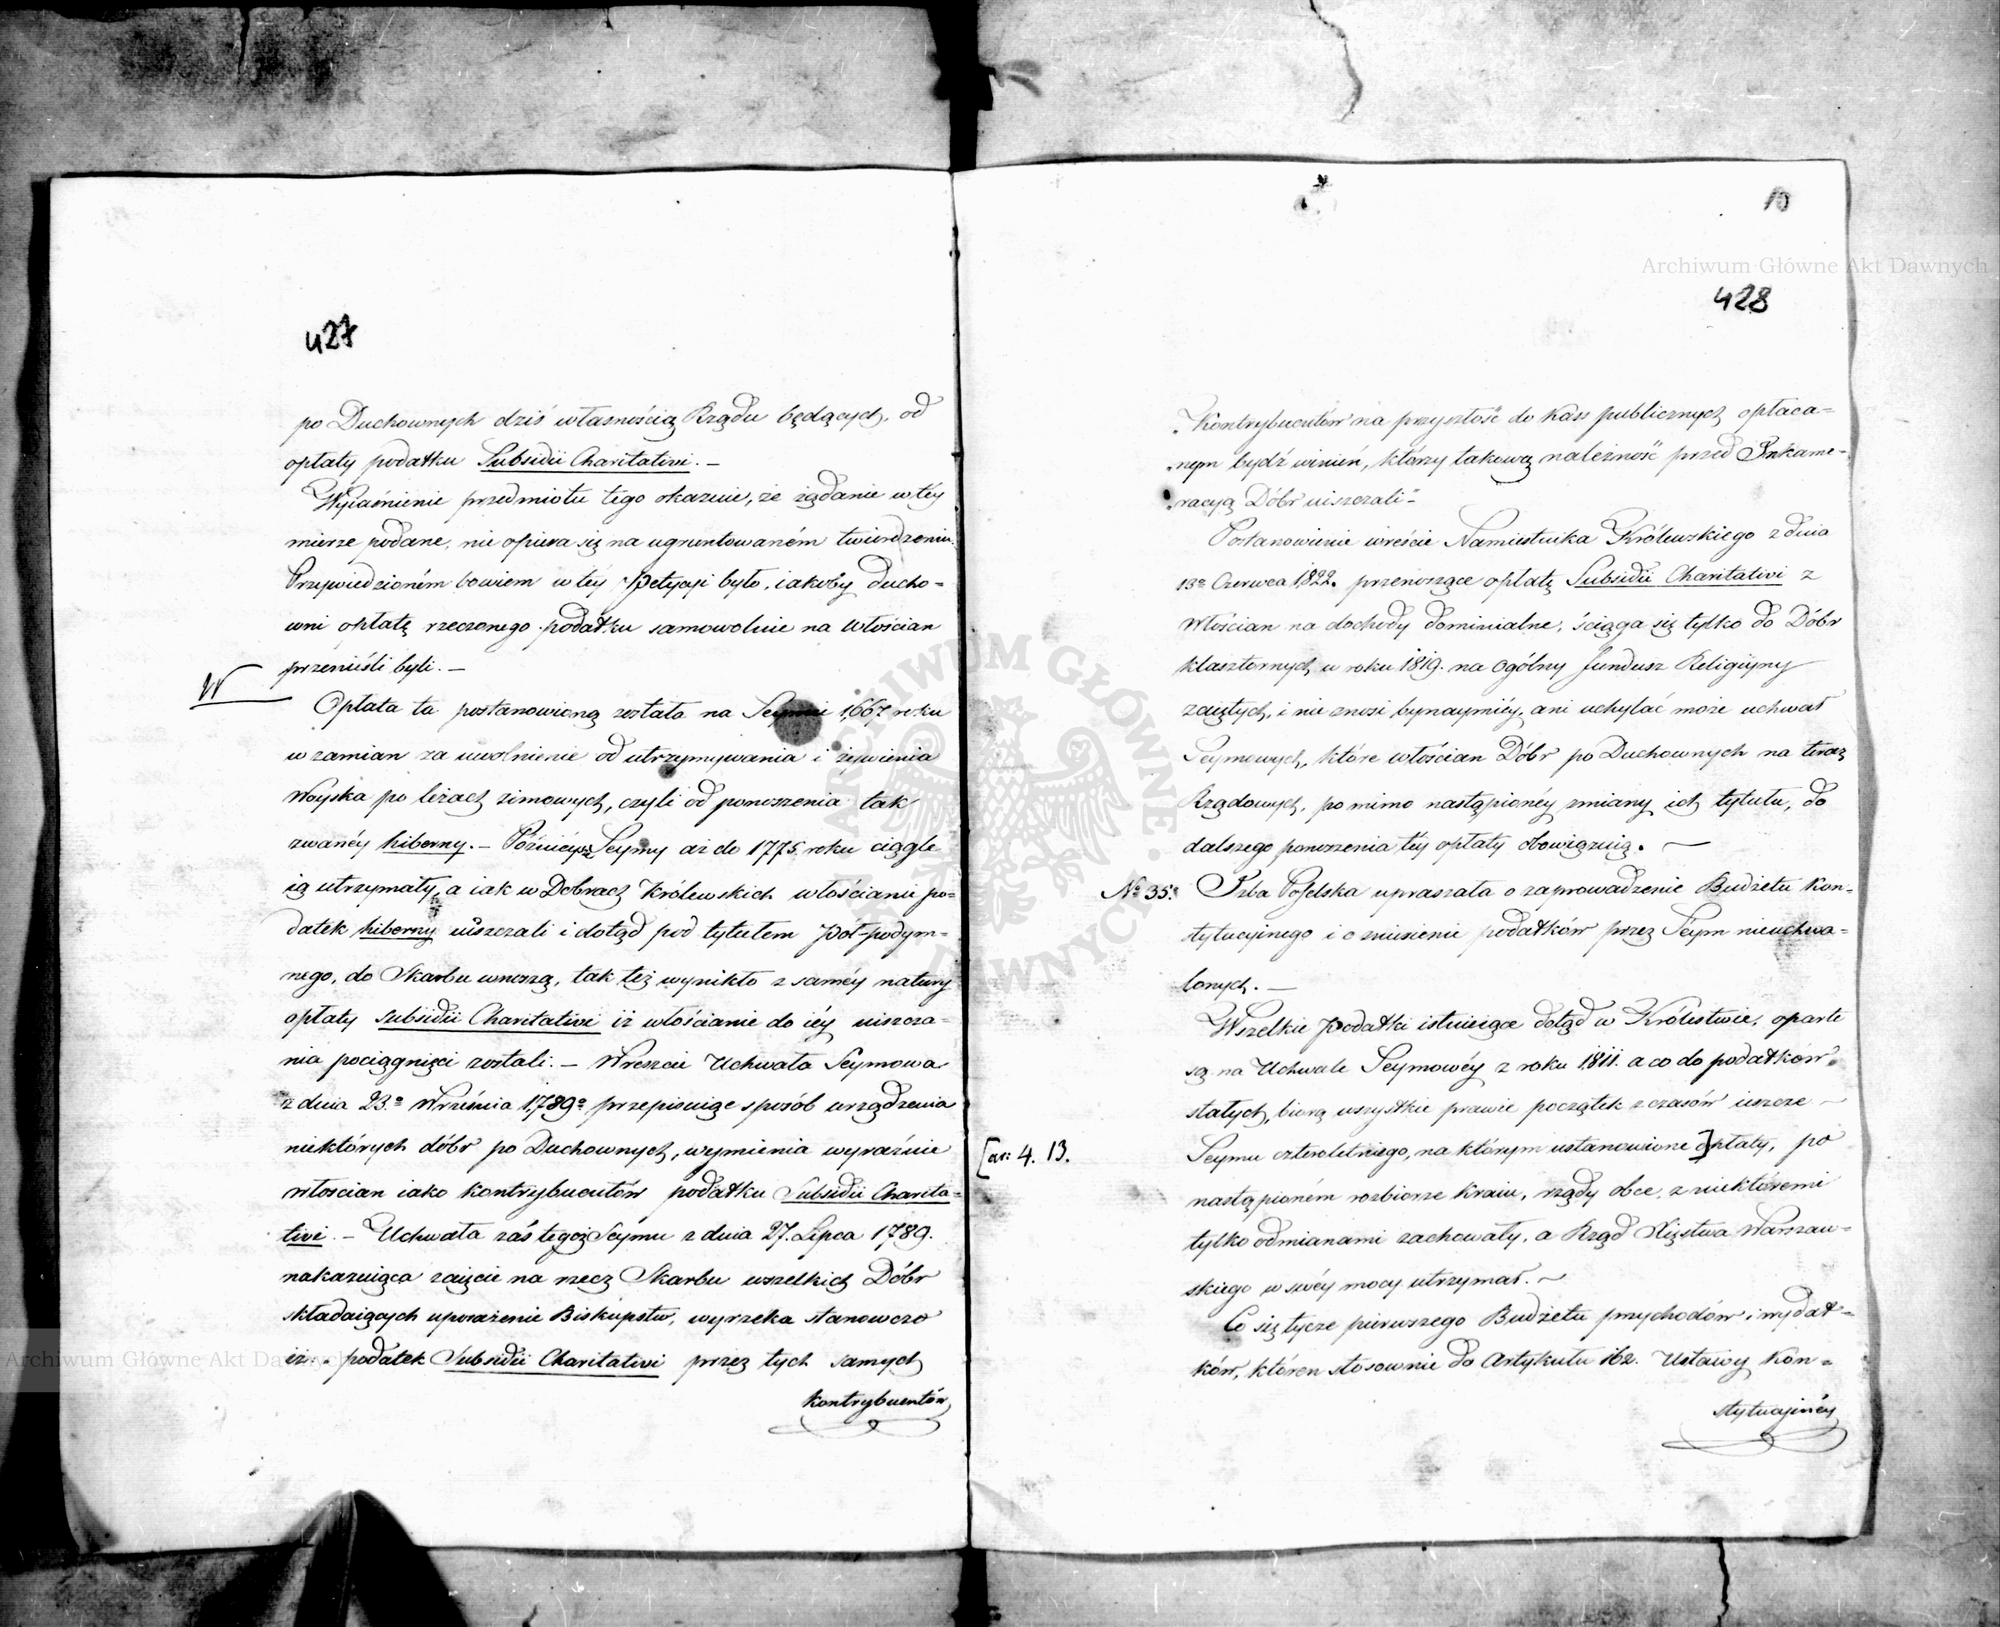 427
po Duchownych dziś własnością Rządu będących, od
opłaty podatku Subsidii Charitativi. –
Wyiaśnienie przedmiotu tego okazuie, że żądanie w téy
mierze podane, nie opiera się na ugruntowaném twierdzeniu.
Przywiedzioném bowiem w téy Petycyi było, iakoby ducho=
wni opłatę rzeczonego podatku samowolnie na włościan
przenieśli byli. –
W
Opłata ta postanowioną została na Seymie 1667 roku
w zamian za uwolnienie od utrzymywania i żywienia
Woyska po leżach zimowych, czyli od ponoszenia tak
zwanéy hiberny. – Późnieysze Seymy aż do 1775 roku ciągle
ią utrzymały, a iak w Dobrach Królewskich włościanie po=
datek hiberny uiszczali i dotąd pod tytułem Pół-podym=
nego, do Skarbu wnoszą, tak też wynikło z saméy natury
opłaty subsidii Charitativi iż włościanie do iéy uiszcza=
nia pociągnięci zostali. – Wreszcie Uchwała Seymowa
z dnia 23.º Września 1789º przepisuiąc sposób urządzenia
niektórych dóbr po Duchownych, wymienia wyraźnie
włoscian iako kontrybuentów podatku Subsidii Charita=
tivi. – Uchwała zaś tegoż Séymu z dnia 27. Lipca 1789.
nakazuiąca zaięcie na rzecz Skarbu wszelkich Dóbr
składaiących uposażenie Biskupstw, wyrzeka stanowczo
iż „podatek Subsidii Charitativi przez tych samych
kontrybuentów
10
428
„Kontrybuentów na przyszłość do Kass publicznych opłaca=
„nym bydź winien, którzy takową należność przed Inkame=
„racyą Dóbr uiszczali”–
Postanowienie wreście Namiestnika Królewskiego z dnia
13º Czerwca 1822. przenoszące opłatę Subsidii Charitativi z
Włościan na dochody dominialne, ściąga się tylko do Dóbr
klasztornych w roku 1819. na Ogólny fundusz Religiyny
zaiętych, i nie znosi bynaymniéy ani uchylać może uchwał
Seymowych, które włościan Dóbr po Duchownych na teraz
Rządowych, po mimo nastąpionéy zmiany ich tytułu, do
dalszego ponoszenia téy opłaty obowiązuią. –
Nº 35º Izba Poselska upraszała o zaprowadzenie Budżetu Kon=
stytucyjnego i o zniesienie podatków przez Seym nieuchwa=
lonych. –
Wszelkie podatki istnieiące dotąd w Królestwie, oparte
są na Uchwale Seymowéy z roku 1811. a co do podatków
stałych, biorą wszystkie prawie początek z czasów ieszcze –
[ar: 4. 13.
Seymu czteroletniego, na którym ustanowione] opłaty, po
nastąpioném rozbiorze kraiu, rządy obce, z niektóremi
tylko odmianami zachowały, a Rząd Xięstwa Warszaw=
skiego w swéy mocy utrzymał. –
Co się tycze pierwszego Budżetu przychodów i wydat=
ków, któren stosownie do Artykułu 162. Ustawy Kon=
stytucyinéy
Archiwum Główne Akt Dawnych
Archiwum Główne Akt Dawnych
ARCHIWUM GŁÓWNE AKT DAWNYCH